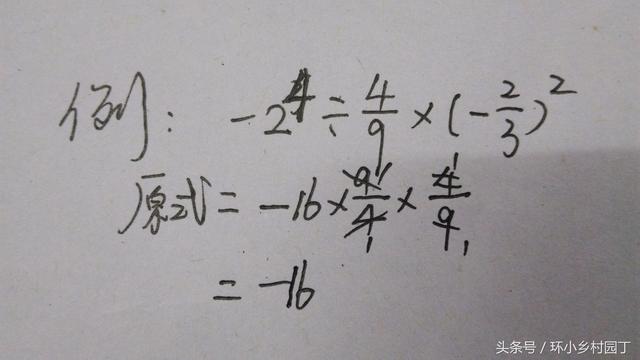 例： -2⁴ ÷ 4/9 × (-2/3)²
原式 = -16 × 9/4 × 4/9
= -16
头条号 / 环小乡村园丁